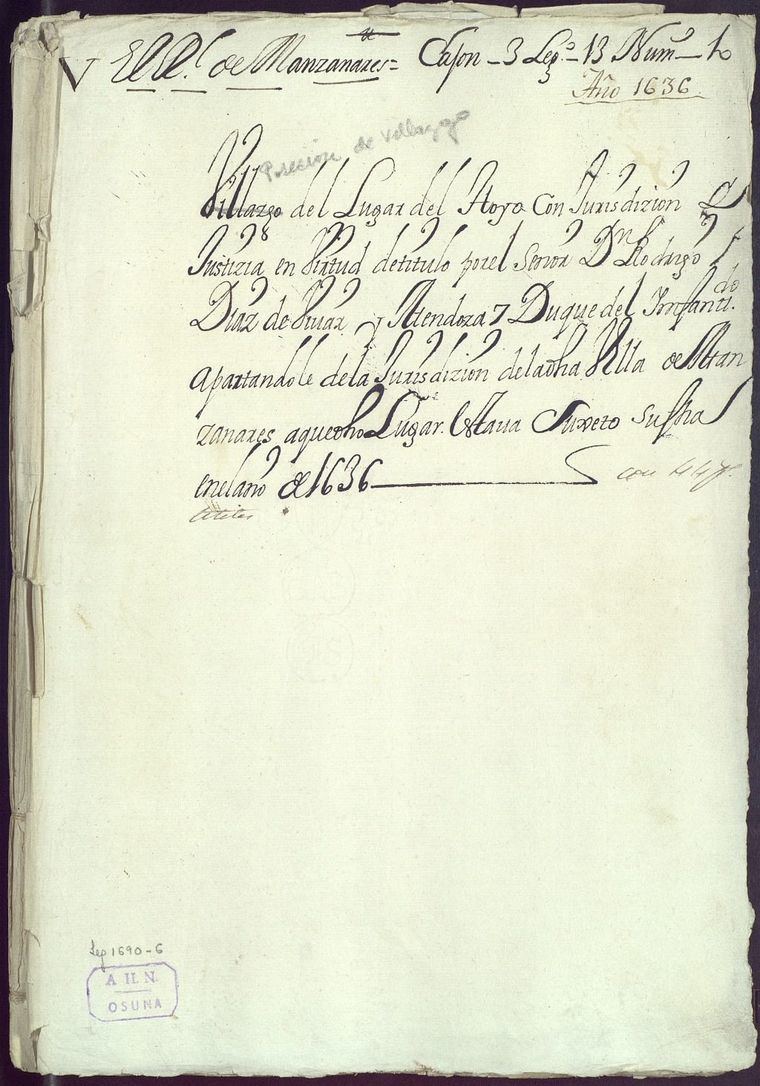 El Rl. de Manzanares = Cajon - 3 Lego. - 13 Numo. 1
Año 1636
de Villazgo
Villazgo del Lugar del Hoyo Con Jurisdizion y
Justizia en Virtud de titulo por el Senor Dn. Rodrigo
Diaz de Viuar y Mendoza 7 Duque del Infantdo.
apartandole de la Jurisdizion de la dha Villa de Man
zanares aque dho Lugar Estaua Suxeto Su fha
en el año de 1636
Leg 1690-6
A. H. N.
OSUNA